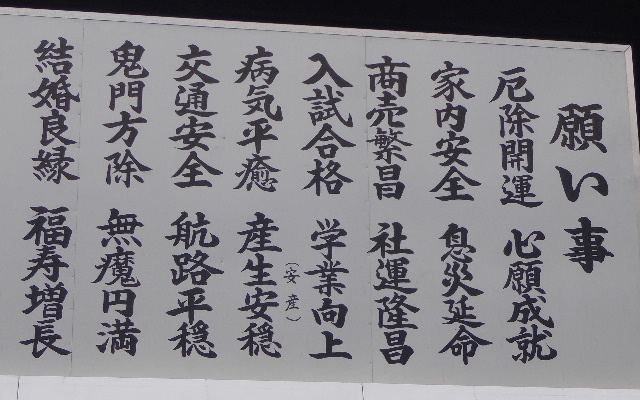 願い事
厄除開運 心願成就
家内安全 息災延命
商売繁昌 社運隆昌
入試合格 学業向上
病気平癒 産生安穏
（安産）
交通安全 航路平穏
鬼門方除 無魔円満
結婚良縁 福寿増長